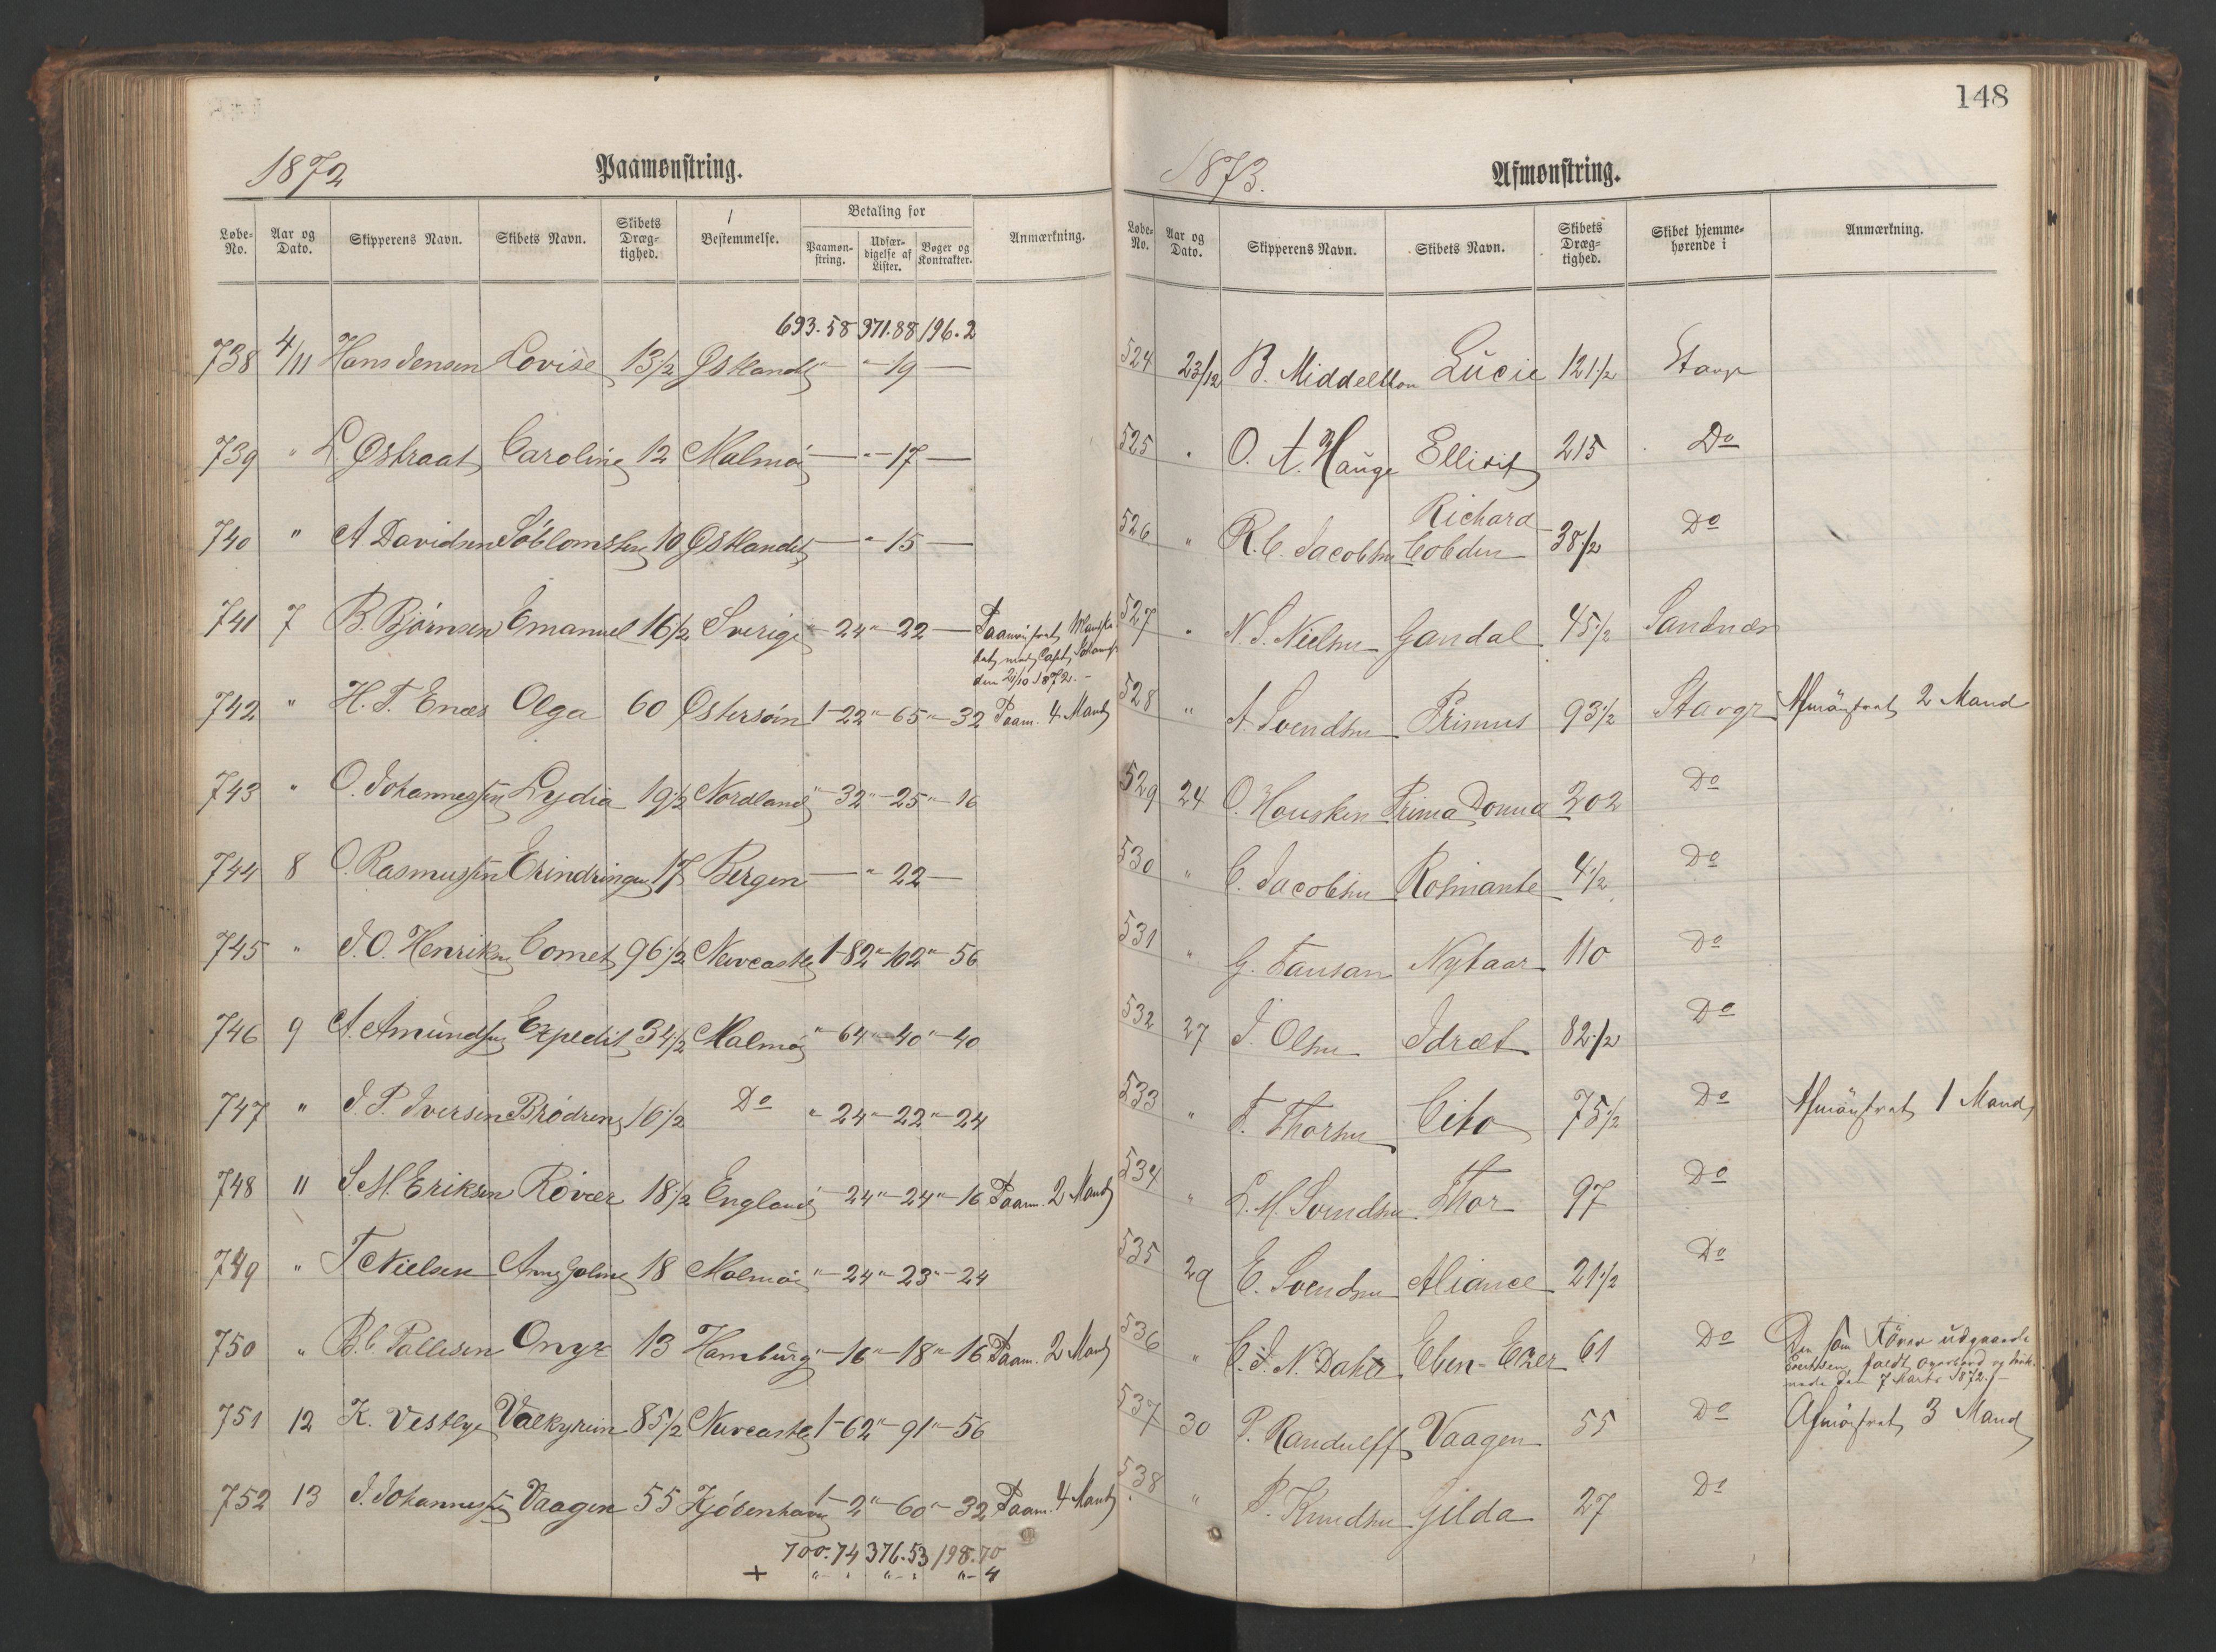 148
1872 Paamønstring.
Løbe-No. Aar og Dato. Skipperens Navn. Skibets Navn. Skibets Dræg-tighed. Bestemmelse. Betaling for Paamøn-string. Udfær-digelse af Lister. Bøger og Kontrakter. Anmærkning.
693.58 371.88 196.2
738 4/11 Hans Jensen Lovise 13 1/2 Østlandet — " - 19 —
739 " L. Østraat Caroline 12 Malmöe — " - 17 —
740 " A Davidsen Söblomsten 10 Østlandet — " - 15 —
741 7 B. Bjørnsen Emanuel 16 1/2 Sverige " 24 " 22 — Paamönstret
den 24/10 1872. -
742 " H. T. Enæs Olga 60 Østersöin 1-22 " 65 " 32 Paam. 4 Mand
743 " O. Johannessen Lydia 19 1/2 Nordland " 32 " 25 " 16
744 8 O. Rasmussen Erindringen 17 Bergen — " 22 —
745 " J. O. Henriksen Comet 96 1/2 Newcastle 1-82 " 102 " 56
746 9 A. Amundsen Expedit 34 1/2 Malmöe " 64 " 40 " 40
747 " J. P. Iversen Brödrene 16 1/2 Do " 24 " 22 " 24
748 11 S. M. Eriksen Röver 18 1/2 England " 24 " 24 " 16 Paam. 2 Mand
749 " T Nielsen Anna Goline 18 Malmöe " 24 " 23 " 24
750 " B. C Pallesen Onyx 13 Hamburg " 16 " 18 " 16 Paam. 2 Mand
751 12 K. Vestbye Valkyrien 85 1/2 Newcastle 1-62 " 91 " 56
752 13 J. Johannessen Vaagen 55 Kjöbenhavn 1- 2 " 60 " 32 Paam. 4 Mand
700.74 376.53 198.70
+ " - . " - : " - 4
1873. Afmønstring.
Løbe-No. Aar og Dato. Skipperens Navn. Skibets Navn. Skibets Dræg-tighed. Skibet hjemme-hørende i Anmærkning.
524 23/12 B. Middelthon Lucie 121 1/2 Stavgr
525 " O. A. Hauge Ellisif 215 Do
526 " R. C. Jacobsen Richard Cobden 38 1/2 Do
527 " N. S. Nielsen Gandal 45 1/2 Sandnæs
528 " A Svendsen Primus 93 1/2 Stavgr Afmönstret 2 Mand
529 24 O. Housken Prima Donna 202 Do
530 " C. Jacobsen Rosinante 4 1/2 Do
531 " G. Tausan Nytaar 110 Do
532 27 J. Olsen Idræt 82 1/2 Do
533 " T. Thorsen Cito 75 1/2 Do Afmönstret 1 Mand
534 " L. M. Svendsen Thor 97 Do
535 29 E. Svendsen Aliance 21 1/2 Do
536 " C. J. N. Dahl Eben-Ezer 61 Do Den som Förer udgaaede
faldt overbord og druk-
nede den 7 Marts 1872. -
537 30 P. Randulff Vaagen 55 Do Afmönstret 3 Mand
538 " P. Knudsen Gilda 27 Do